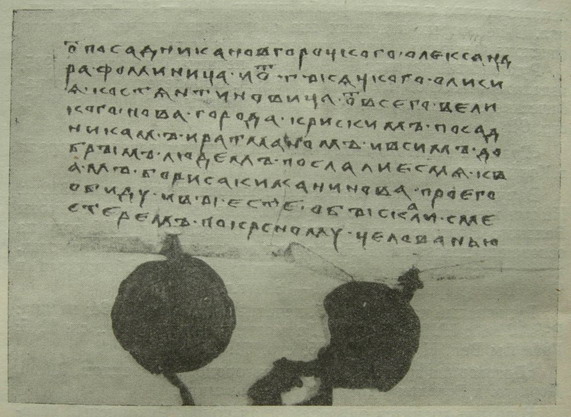 ѿ посадника новгороцкого · олександ
ра · фоминица · и ѿ · тꙑсѧцкого · олиси
ѧ · костѧнтиновица · ѿ всего · вели
кого · нова · города · к рискимъ · посад
никамъ · и ратманомъ · и всимъ · до
брымъ · людемъ · послали есмѧ · къ
вамъ · бориса килианинова · про его
обиду · и вꙑ есте · обꙑскали · с ме
стеремъ · по крсному · челованью